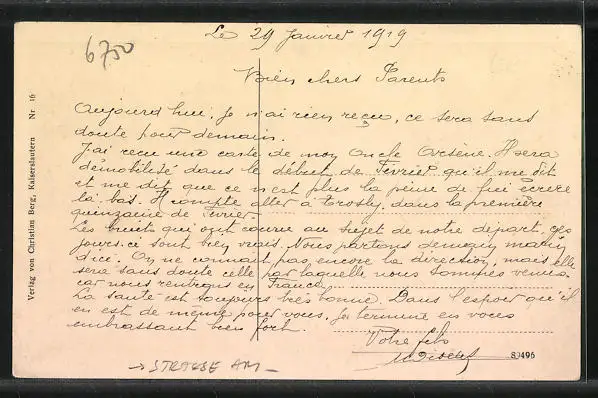 6750
Le 29 Janvier 1919
Bien chers Parents
Aujourd hui. Je n'ai rien reçu, ce sera sans
doute pour demain.
J'ai reçu une carte de mon Oncle Arsène. Il sera
démobilité dans le début de Février. qu'il me dit
et me dit que ce n'est plus la peine de lui écrire
là bas. Il compte aller à Crosly, dans la première
quinzaine de Février.
Les bruits qui ont couru au sujet de notre départ, ces
jours ci sont bien vrais. Nous partons demain matin
d'ici. On ne connait pas encore la direction, mais elle
sera sans doute celle par laquelle nous sommes venus
car nous rentrons en France.
La santé est toujours très bonne. Dans l'espoir qu'il
en est de même pour vous. Je termine en vous
embrassant bien fort.
Votre fils
→ STRASSE AM —
89496
Verlag von Christian Berg, Kaiserslautern Nr. 16